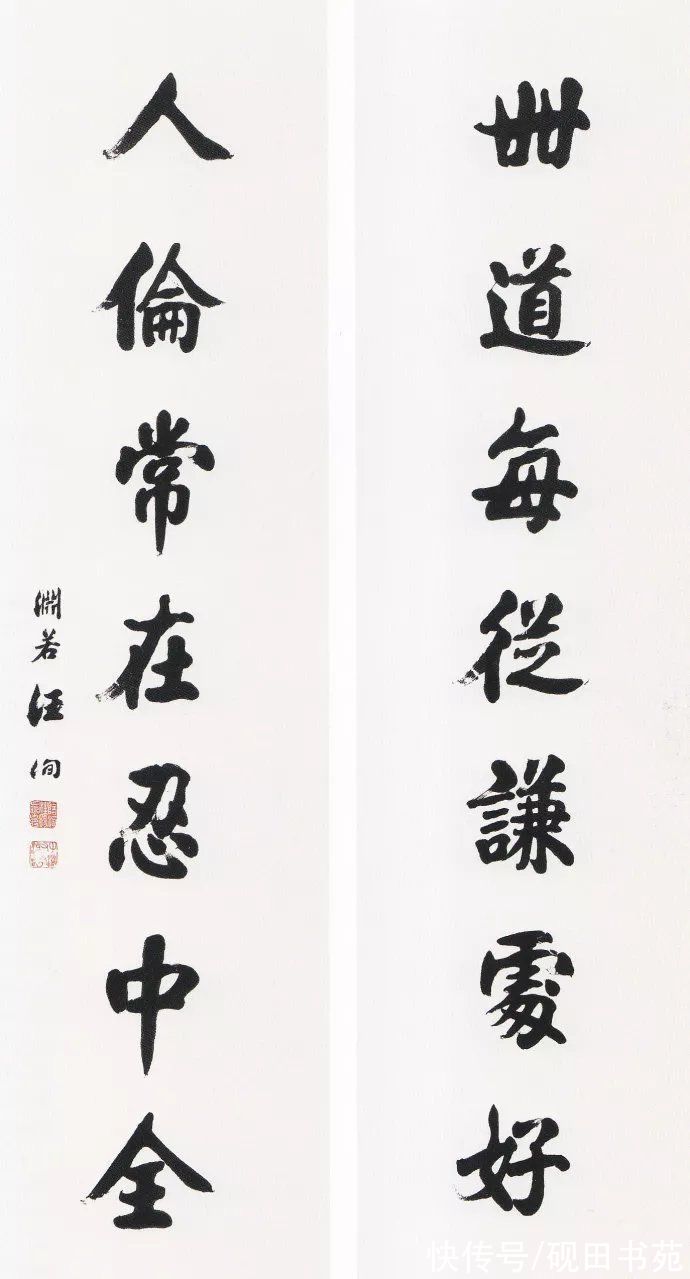 世道每從謙處好
人倫常在忍中全
淵若汪洵
快传号/砚田书苑